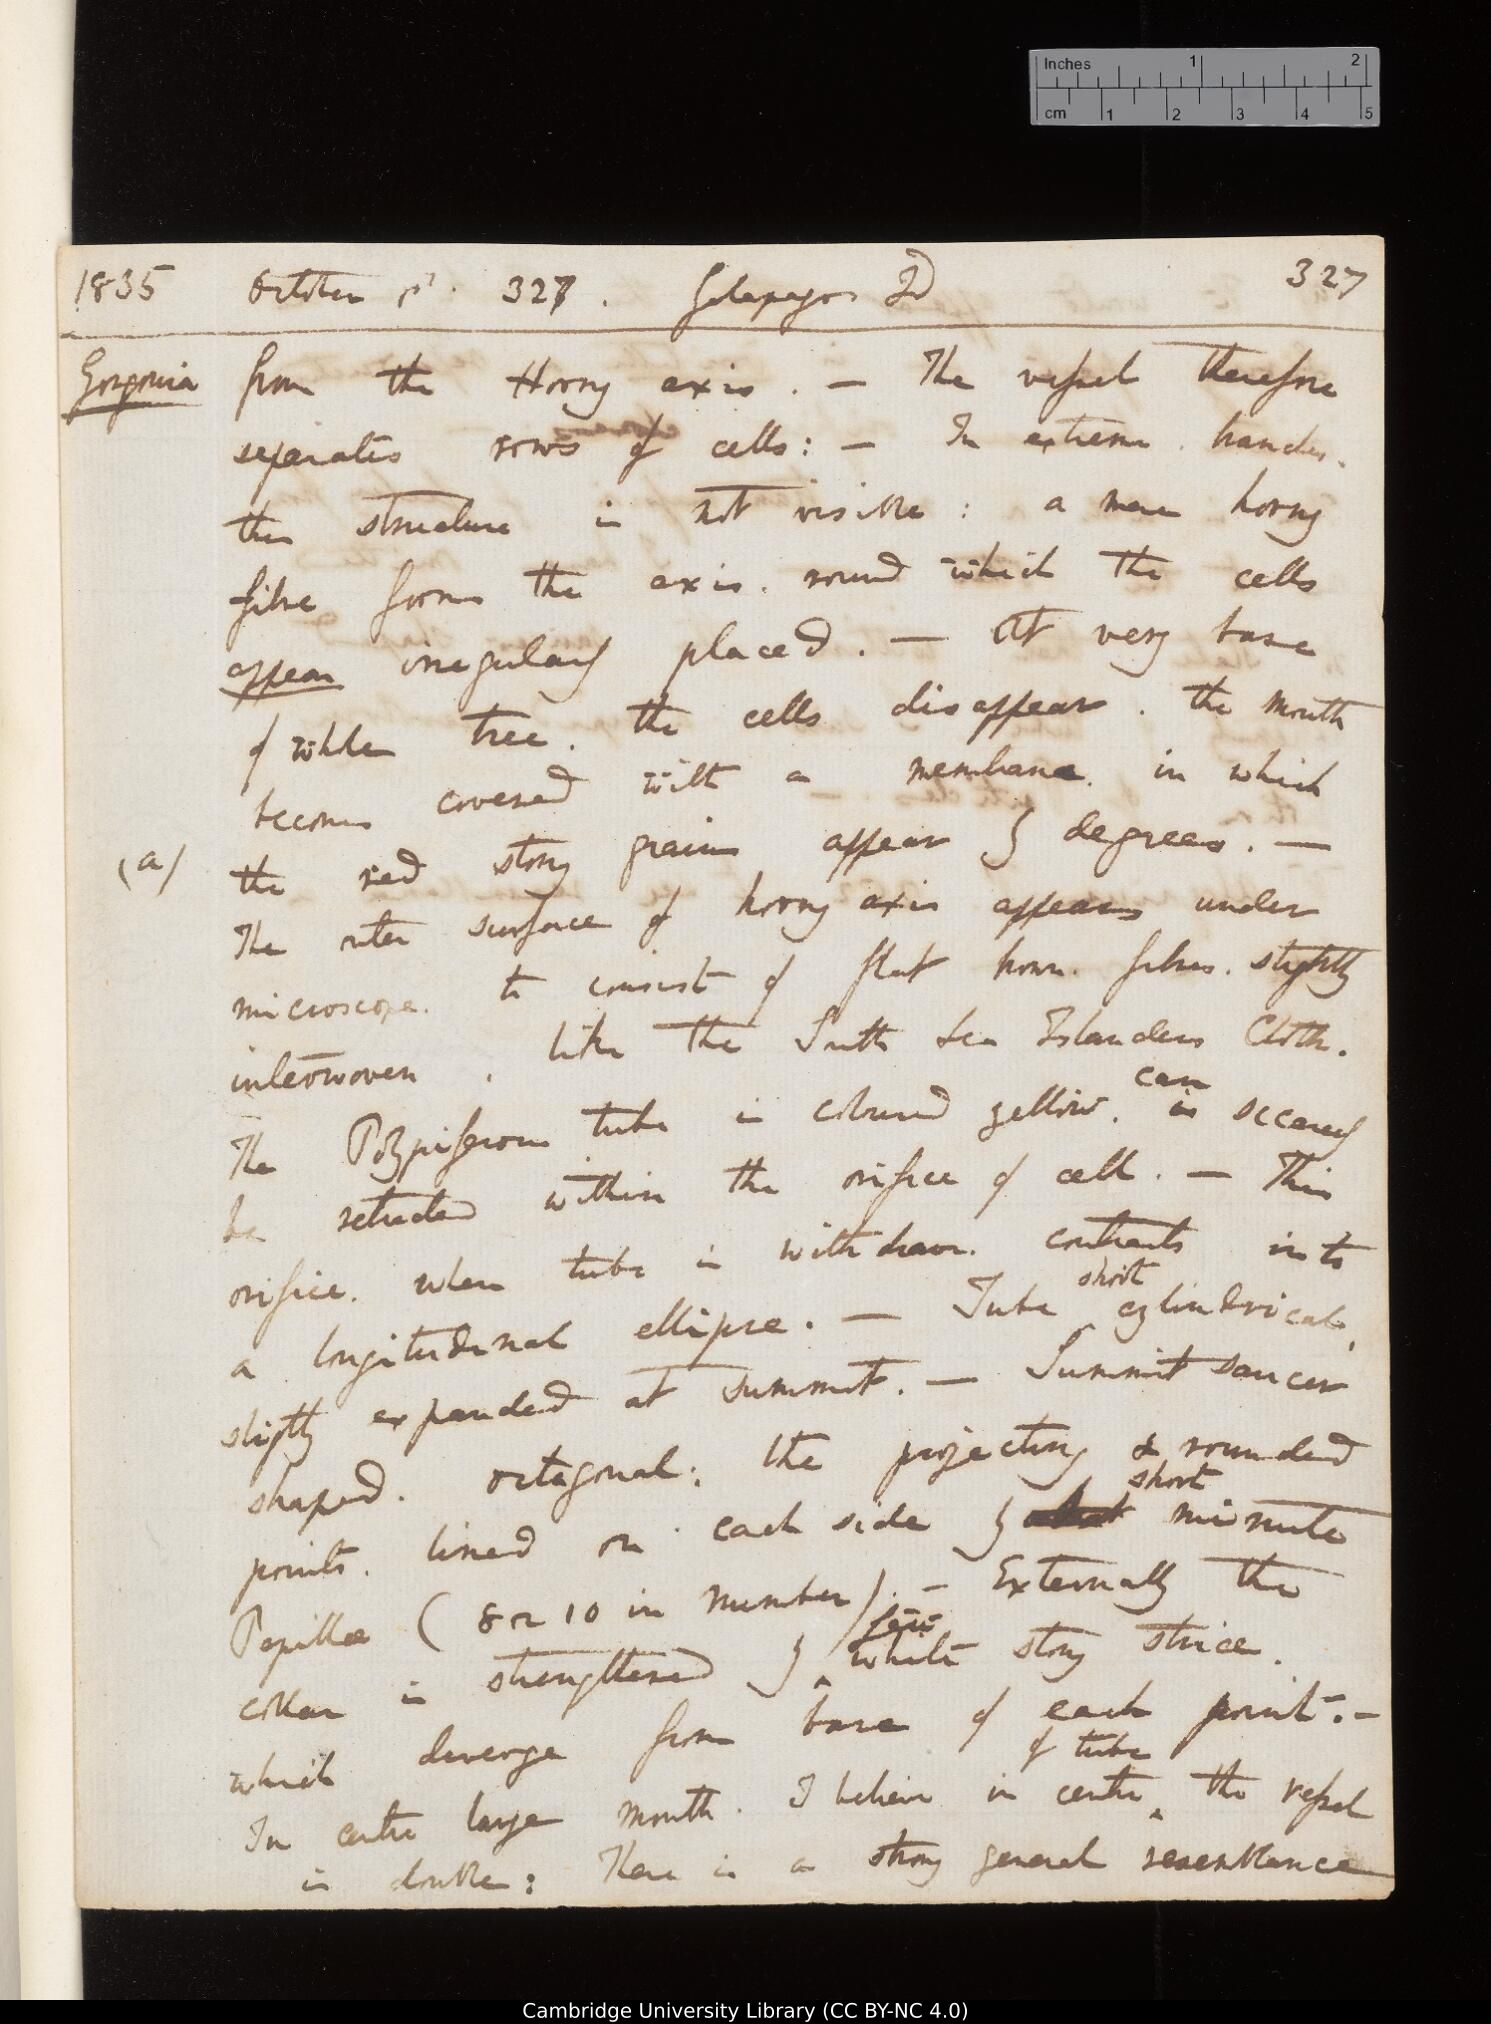 Inches 1 2
cm 1 2 3 4 5
1835 October 327. Galapagos Id 327
Gorgonia from the Horny axis. — The vessel therefore
separates rows of cells: — In extreme branches.
this structure is not visible: a mere horny
fibre forms the axis. round which the cells
appear irregularly placed. — At very base
of whole tree. the cells disappear. the mouth
becomes covered with a membrane. in which
(a) the red stony grains appear by degrees. —
The outer surface of horny axis appears under
microscope. to consist of flat brown. fibres. slightly
interwoven. like the South Sea Islanders Cloth.
can
The Polypiferous tube is coloured yellow. is scarcely
be retracted within the orifice of cell. — This
orifice. when tube is withdrawn. contracts into
short
a longitudinal ellipse. — Tube cylindrical,
slightly expanded at summit. — Summit saucer
shaped. octagonal: the projecting & rounded
short
points. lined on each side by minute
Papillæ (8 or 10 in number). — Externally the
few
collar is strengthened by white stony striæ.
which diverge from base of each point. —
of tube
In centre large mouth. I believe in centre the vessel
is double: There is a strong general resemblance
Cambridge University Library (CC BY-NC 4.0)